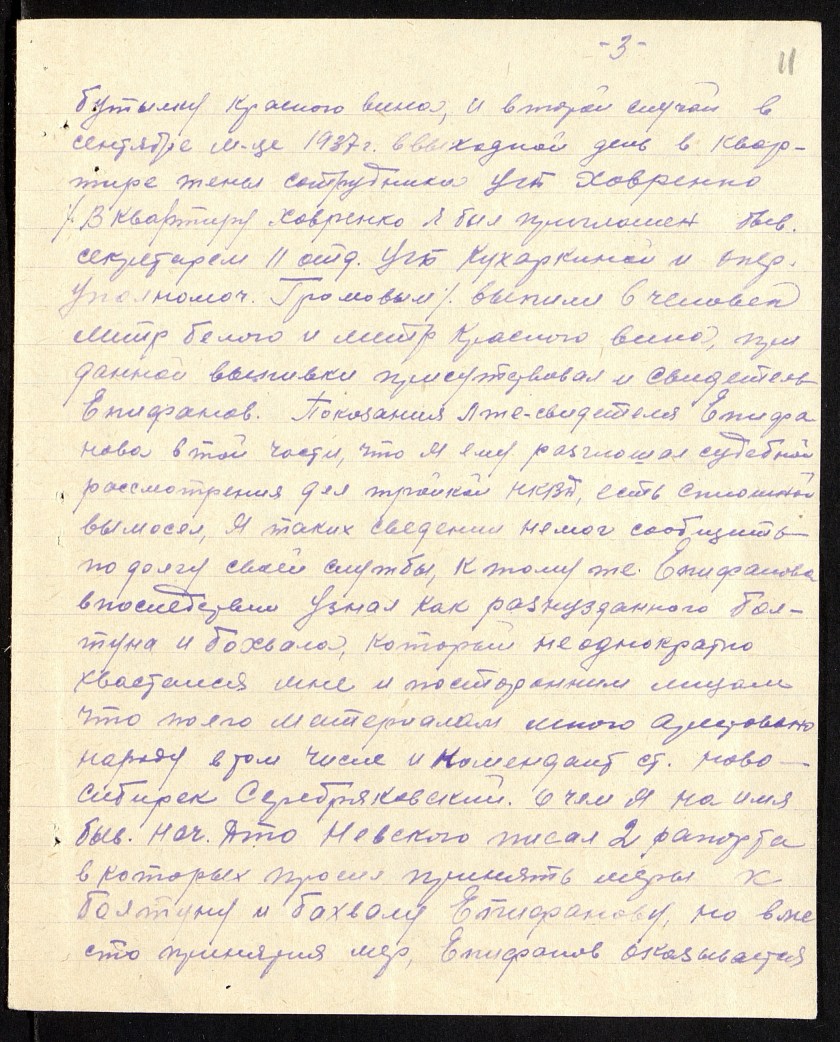 -3-
11
бутылку красного вина, и второй случай в
сентябре м-це 1937г. в выходной день в квар-
тире жены сотрудника УГБ Ховренко
/. В квартиру Ховренко я был приглашен быв.
секретарем 11 отд. УГБ Кухаркиной и опер.
уполномоч. Громовым/. выпили 6 человек
литр белого и литр красного вина, при
данной выпивки присутствовал и свидетель
Епифанов. Показания лже-свидетеля Епифа
нова в той части, что я ему разглошал судебной
рассмотрения дел тройкой НКВД, есть сплошной
вымосел, Я таких сведении немог сообщить
по долгу своей службы, к тому же. Епифанова
впоследствии узнал как разнузданного бол-
туна и бохвала, который неоднократно
хвастался мне и посторонним лицам
что по его материалам много арестовано
народу в том числе и комендант ст. ново-
сибирск Серебряковский. о чем я на имя
быв. нач. ДТО Невского писал 2 рапорта
в которых просил принять меры к
болтуну и бахвалу Епифанову, но вме
сто принятия мер, Епифанов оказывается